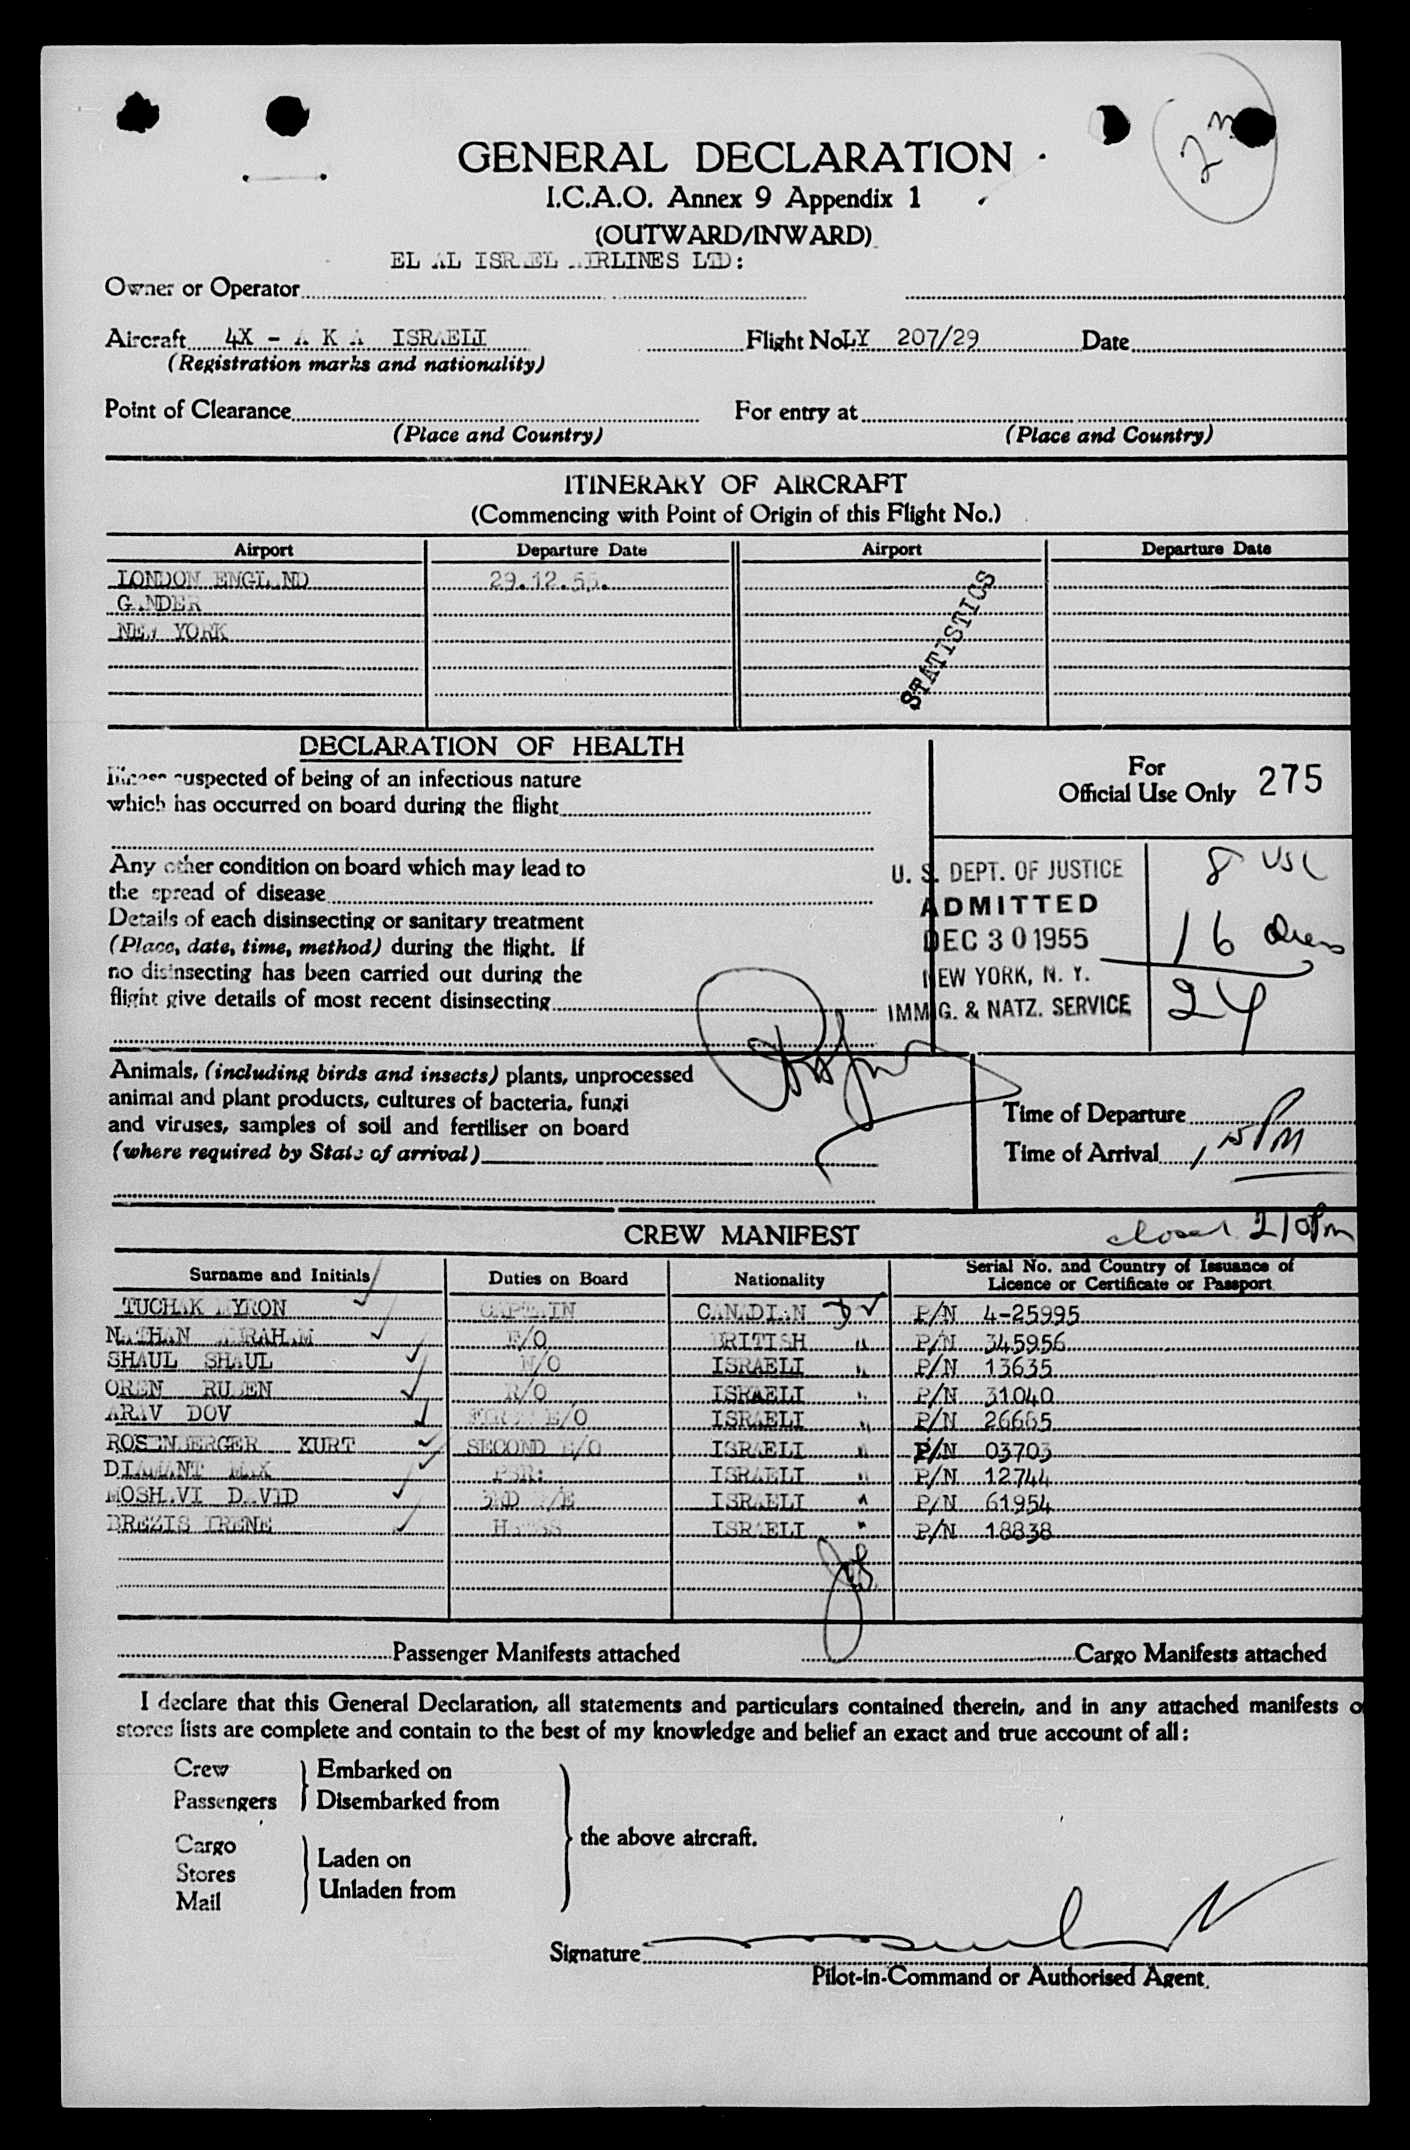 23
GENERAL DECLARATION
I.C.A.O. Annex 9 Appendix 1
(OUTWARD/INWARD)
EL AL ISRAEL AIRLINES LTD:
Owner or Operator
Aircraft 4X - A K A ISRAELI Flight No. LY 207/29 Date
(Registration marks and nationality)
Point of Clearance For entry at
(Place and Country) (Place and Country)
ITINERARY OF AIRCRAFT
(Commencing with Point of Origin of this Flight No.)
Airport Departure Date Airport Departure Date
LONDON ENGLAND 29.12.55.
GANDER
NEW YORK
STATISTICS
DECLARATION OF HEALTH
Illness suspected of being of an infectious nature
which has occurred on board during the flight
For
Official Use Only 275
Any other condition on board which may lead to
the spread of disease
Details of each disinsecting or sanitary treatment
(Place, date, time, method) during the flight. If
no disinsecting has been carried out during the
flight give details of most recent disinsecting
U. S. DEPT. OF JUSTICE
ADMITTED
DEC 30 1955
NEW YORK, N. Y.
IMMIG. & NATZ. SERVICE
8 USC
16 aliens
24
Animals, (including birds and insects) plants, unprocessed
animal and plant products, cultures of bacteria, fungi
and viruses, samples of soil and fertiliser on board
(where required by State of arrival)
Time of Departure
Time of Arrival PM
CREW MANIFEST closed 210 Pm
Surname and Initials Duties on Board Nationality Serial No. and Country of Issuance of
Licence or Certificate or Passport
TUCHAK MYRON CAPTAIN CANADIAN P/N 4-25995
NATHAN ABRAHAM F/O BRITISH " P/N 345956
SHAUL SHAUL N/O ISRAELI " P/N 13635
OREN RUBEN R/O ISRAELI " P/N 31040
ARAV DOV FIRST E/O ISRAELI " P/N 26665
ROSENBERGER KURT SECOND E/O ISRAELI " P/N 03703
DIAMANT MAX PSR: ISRAELI " P/N 12744
MOSHAVI DAVID 3RD F/E ISRAELI " P/N 61954
BREZIS IRENE HOSTESS ISRAELI " P/N 18838
Passenger Manifests attached Cargo Manifests attached
I declare that this General Declaration, all statements and particulars contained therein, and in any attached manifests o
stores lists are complete and contain to the best of my knowledge and belief an exact and true account of all:
Crew Embarked on
Passengers Disembarked from
the above aircraft.
Cargo Laden on
Stores Unladen from
Mail
Signature
Pilot-in-Command or Authorised Agent.